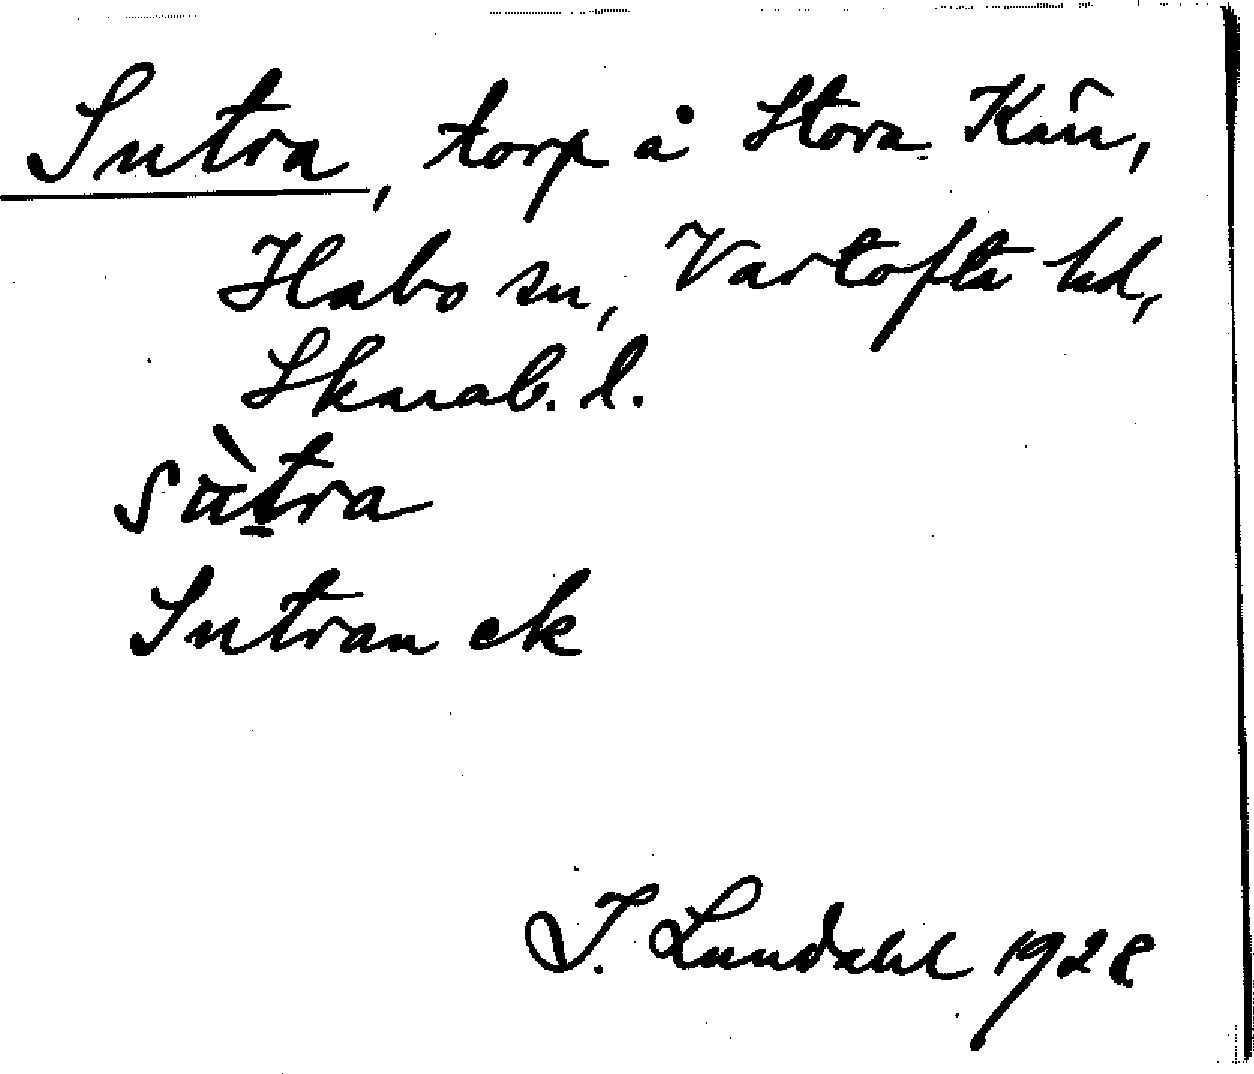 Sutra, torp å Stora Kärr,
Habo sn, Vartofta hd,
Skarab. l.
sùtra
Sutran ek
I. Lundahl 1928